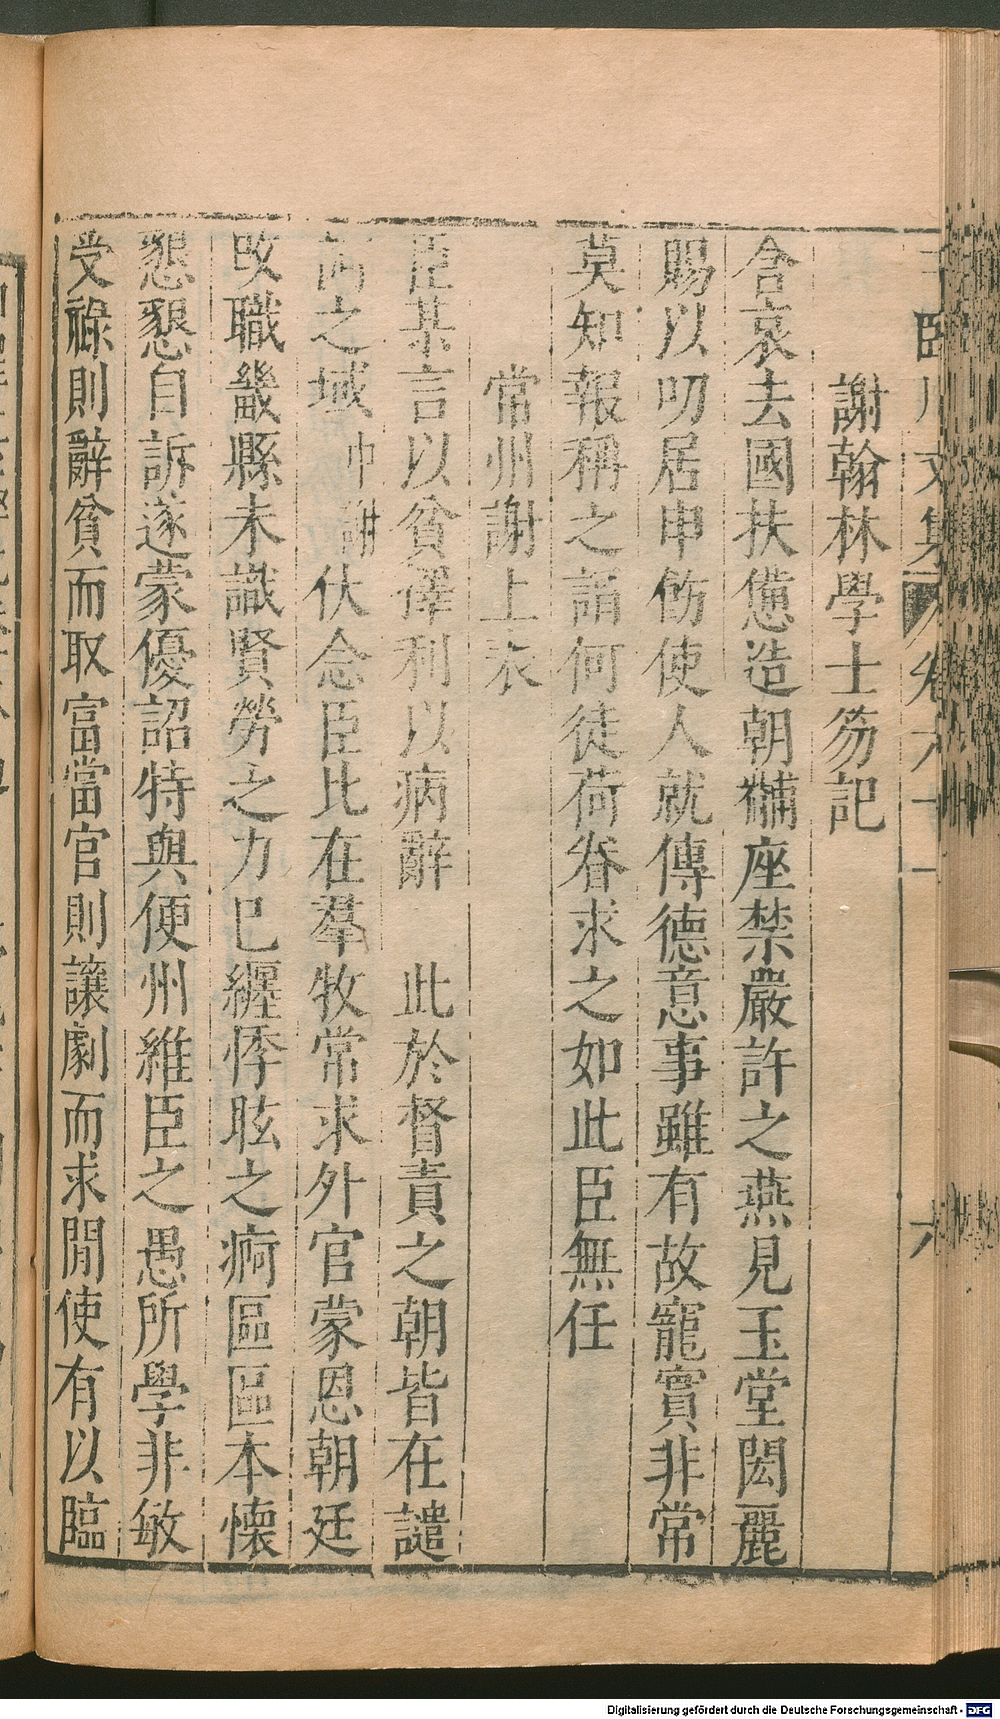 臨川文集 卷六十一 六
謝翰林學士笏記
含哀去國扶憊造朝黼座禁嚴許之燕見玉堂閎麗
賜以叨居申飭使人就傳德意事雖有故寵實非常
莫知報稱之謂何徒荷眷求之如此臣無任
常州謝上表
臣某言以貧擇利以病辭 此於督責之朝皆在譴
訶之域中謝伏念臣比在羣牧常求外官蒙恩朝廷
改職畿縣未識賢勞之力已纏悸眩之痾區區本懷
懇懇自訴遂蒙優詔特與便州維臣之愚所學非敏
受祿則辭貧而取富當官則讓劇而求閒使有以臨
Digitalisierung gefördert durch die Deutsche Forschungsgemeinschaft - DFG